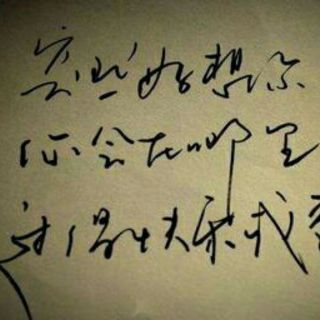 突然好想你
你会在哪里
过得快乐或